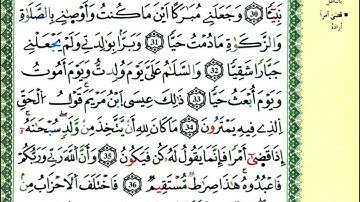 نَبِيًّا 30 وَجَعَلَنِے مُبَٰرَكاً اَيْنَ مَا كُنتُ وَأَوْصَٰنِے بِالصَّلَوٰةِ
وَالزَّكَوٰةِ مَا دُمْتُ حَيّاً 31 وَبَرّاَۢ بِوَٰلِدَتِے وَلَمْ يَجْعَلْنِے
جَبَّاراً شَقِيّاً 32 وَالسَّلَٰمُ عَلَىَّ يَوْمَ وُلِدتُّ وَيَوْمَ أَمُوتُ
وَيَوْمَ أُبْعَثُ حَيّاً 33 ذَٰلِكَ عِيسَى اَبْنُ مَرْيَمَ قَوْلُ اُلْحَقِّ
اِلذِے فِيهِ يَمْتَرُونَ 34 مَا كَانَ لِلهِ أَنْ يَّتَّخِذَ مِنْ وَّلَدٍ سُبْحَٰنَهُۥٓ
إِذَا قَضَىٰٓ أَمْراً فَإِنَّمَا يَقُولُ لَهُۥ كُن فَيَكُونُ 35 وَأَنَّ اَللَّهَ رَبِّے وَرَبُّكُمْ
فَاعْبُدُوهُ هَٰذَا صِرَٰطٌ مُّسْتَقِيمٌ 36 فَاخْتَلَفَ اَلَاحْزَابُ مِنۢ
قضى أمراً
أراده